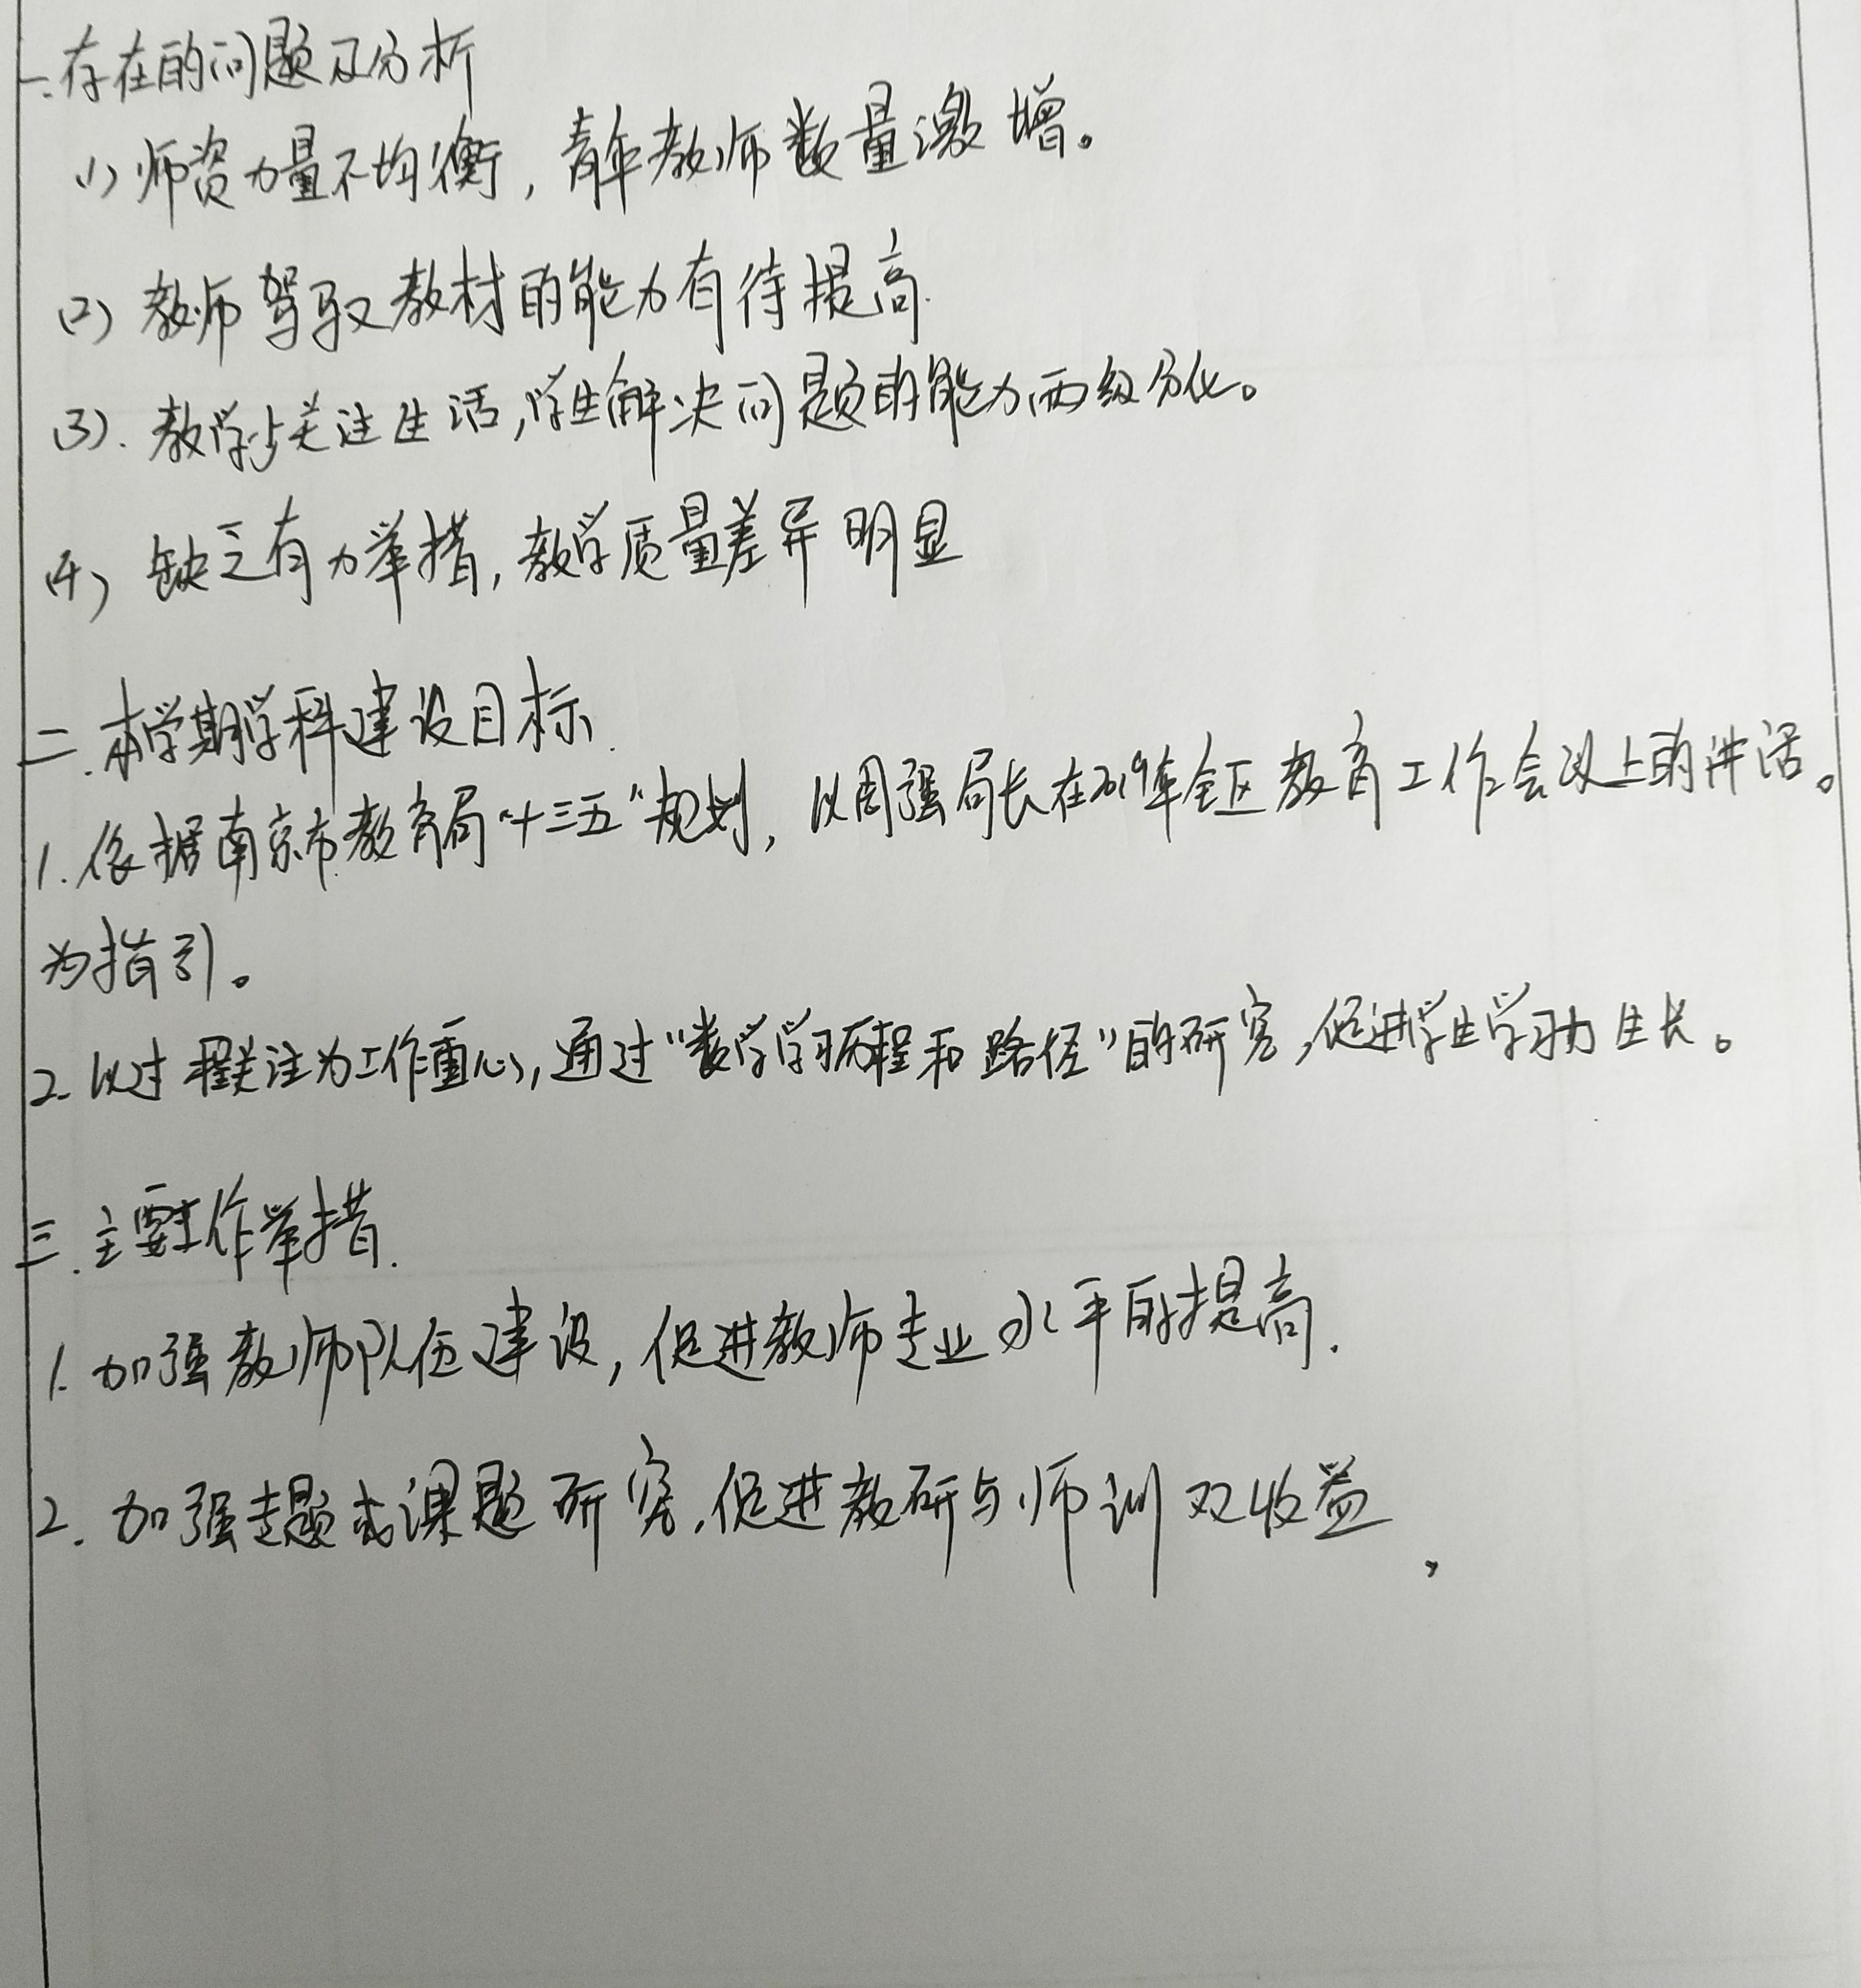 一.存在的问题及分析
(1)师资力量不均衡，青年教师数量激增。
(2)教师驾驭教材的能力有待提高.
(3).教学少关注生活,学生解决问题的能力两级分化。
(4)缺乏有力举措,教学质量差异明显
二.本学期学科建设目标.
1.依据南京市教育局“十三五”规划，以周强局长在2019年全区教育工作会议上的讲话。
为指引。
2.以过程关注为工作重心,通过“数学学习历程和路径”的研究,促进学生学习力生长。
三.主要工作举措.
1.加强教师队伍建设,促进教师专业水平的提高.
2.加强专题或课题研究,促进教研与师训双收益,